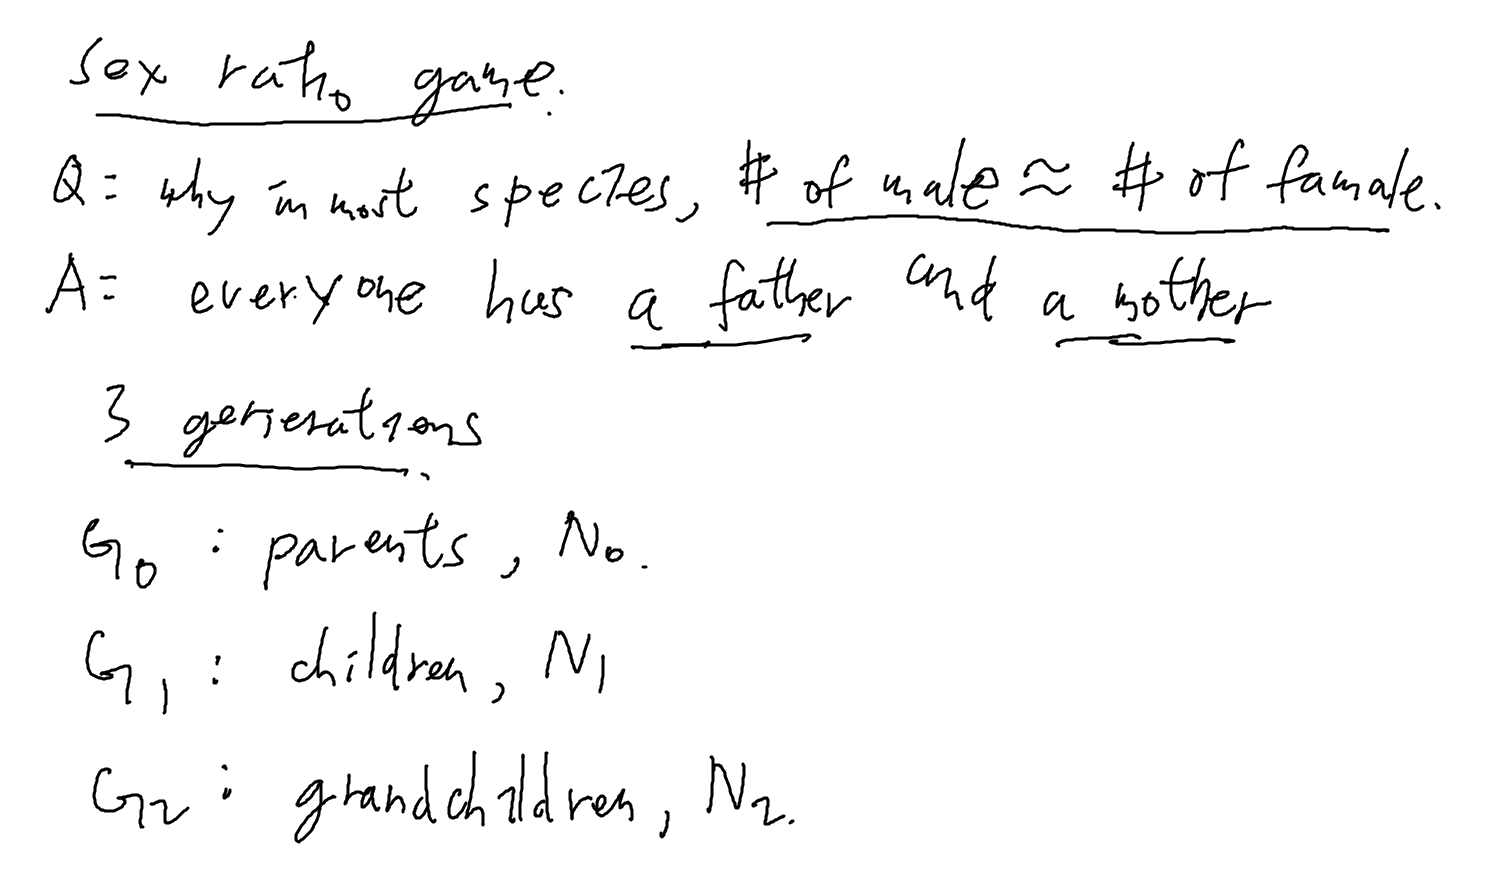 Sex ratio game.
Q: why in most species, # of male ≈ # of famale.
A: everyone has a father and a mother
3 generations
G0 : parents, N0.
G1 : children, N1
G2 : grandchildren, N2.